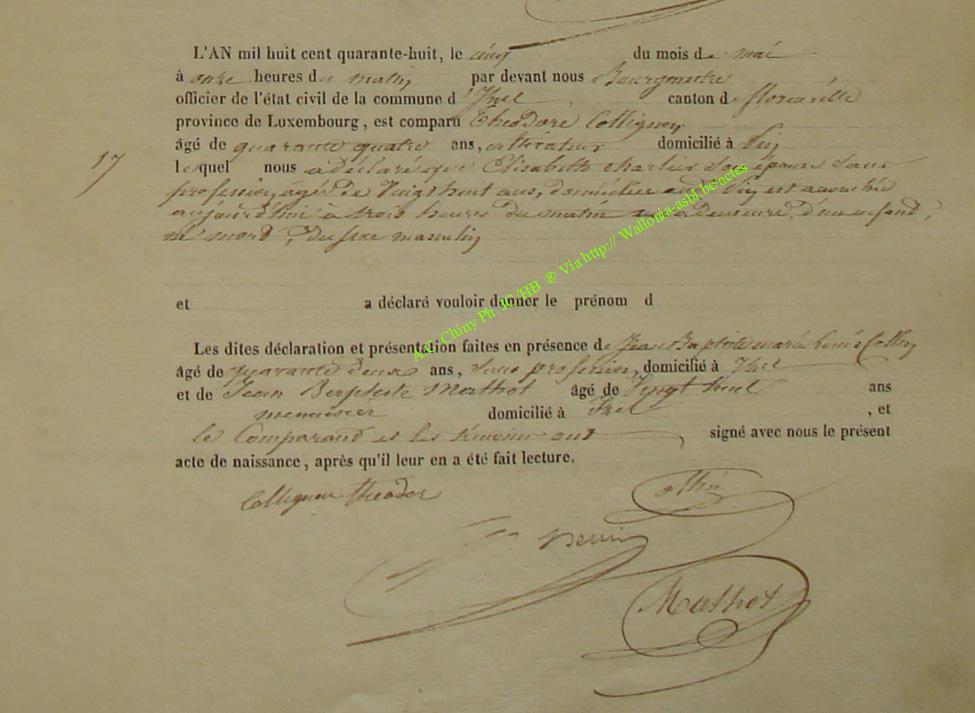 L'AN mil huit cent quarante-huit, le cinq du mois de mai
à onze heures du matin par devant nous Bourgmestre
officier de l'état civil de la commune d'Izel, canton de florenville
province de Luxembourg, est comparu Théodore Collignon,
âgé de quarante quatre ans, domicilié à Pin
17
lequel nous a déclaré que Elisabeth Charlier Son épouse Sans
profession, agée de Vingt huit ans, domiciliée audit Pin, est accouchée
aujourd'hui à trois heures du matin en sa demeure, d'un enfant,
né mort, du sexe masculin
et a déclaré vouloir donner le prénom d
Les dites déclaration et présentation faites en présence de Jean Baptiste marie Louis Collin
âgé de quarante deux ans, Sans profession, domicilié à Izel
et de Jean Baptiste Mathot âgé de Vingt huit ans
menuisier domicilié à Izel, et
le Comparant et les témoins ont signé avec nous le présent
acte de naissance, après qu'il leur en a été fait lecture.
Collignon théodor
Collin
Mathot
AC. Chiny Ph. JC/HB ® Via http:// Wallonia-asbl.be/actes